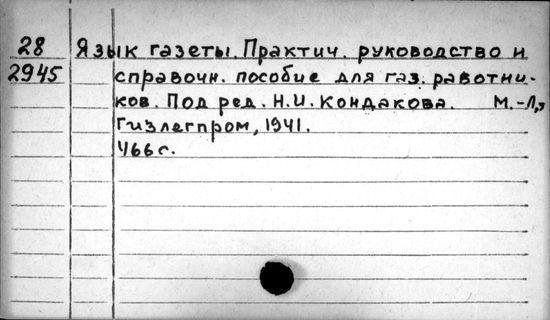 28 Язык газеты. Практич. руководство и
2945 справочн. пособие для газ. работни-
ков. Под ред. Н.И. Кондакова. М.-Л.,
Гизлегпром, 1941.
466 с.